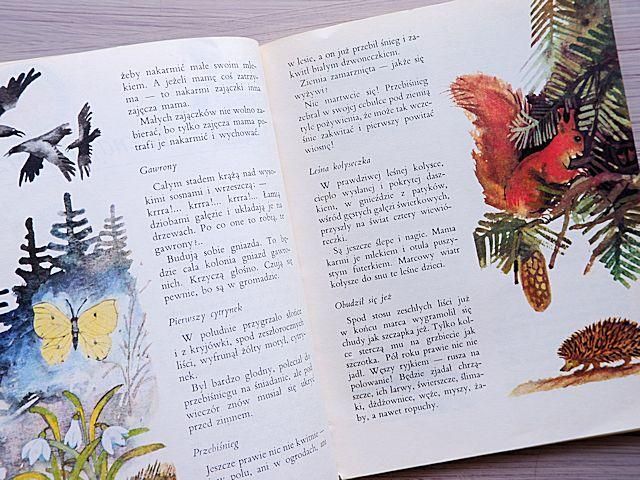 żeby nakarmić małe swoim mle-
kiem. A jeżeli mamę coś zatrzy-
ma — to nakarmi zajączki inna
zajęcza mama.
Małych zajączków nie wolno za-
bierać, bo tylko zajęcza mama po-
trafi je nakarmić i wychować.
Gawrony
Całym stadem krążą nad wyso-
kimi sosnami i wrzeszczą: —
krrra!... krrra!... krrra!... Łamią
dziobami gałęzie i układają je na
drzewach. Po co one to robią, te
gawrony?..
Budują sobie gniazda. To bę-
dzie cała kolonia gniazd gawro-
nich. Krzyczą głośno. Czują się
pewnie, bo są w gromadzie.
Pierwszy cytrynek
W południe przygrzało słońce
i z kryjówki, spod zeszłorocznych
liści, wyfrunął żółty motyl, cytry-
nek.
Był bardzo głodny, poleciał do
przebiśniegu na śniadanie, ale pod
wieczór znów musiał się ukryć
przed zimnem.
Przebiśnieg
Jeszcze prawie nic nie kwitnie —
w polu, ani w ogrodach, ani
w lesie, a on już przebił śnieg i za-
kwitł białym dzwoneczkiem.
Ziemia zamarznięta — jakże się
wyżywi?
Nie martwcie się! Przebiśnieg
zebrał w swojej cebulce pod ziemią
tyle pożywienia, że może tak wcze-
śnie zakwitać i pierwszy powitać
wiosnę!
Leśna kołyseczka
W prawdziwej leśnej kołysce,
ciepło wysłanej i pokrytej dasz-
kiem, w gnieździe z patyków,
wśród gęstych gałęzi świerkowych,
przyszły na świat cztery wiewió-
reczki.
Są jeszcze ślepe i nagie. Mama
karmi je mlekiem i otula puszy-
stym futerkiem. Marcowy wiatr
kołysze do snu te leśne dzieci.
Obudził się jeż
Spod stosu zeschłych liści już
w końcu marca wygramolił się
chudy jak szczapka jeż. Tylko kol-
ce sterczą mu na grzbiecie jak
szczotka. Pół roku prawie nic nie
jadł. Węszy ryjkiem — rusza na
polowanie! Będzie zjadał chrząsz-
cze, ich larwy, świerszcze, ślima-
ki, dżdżownice, węże, myszy, ża-
by, a nawet ropuchy.